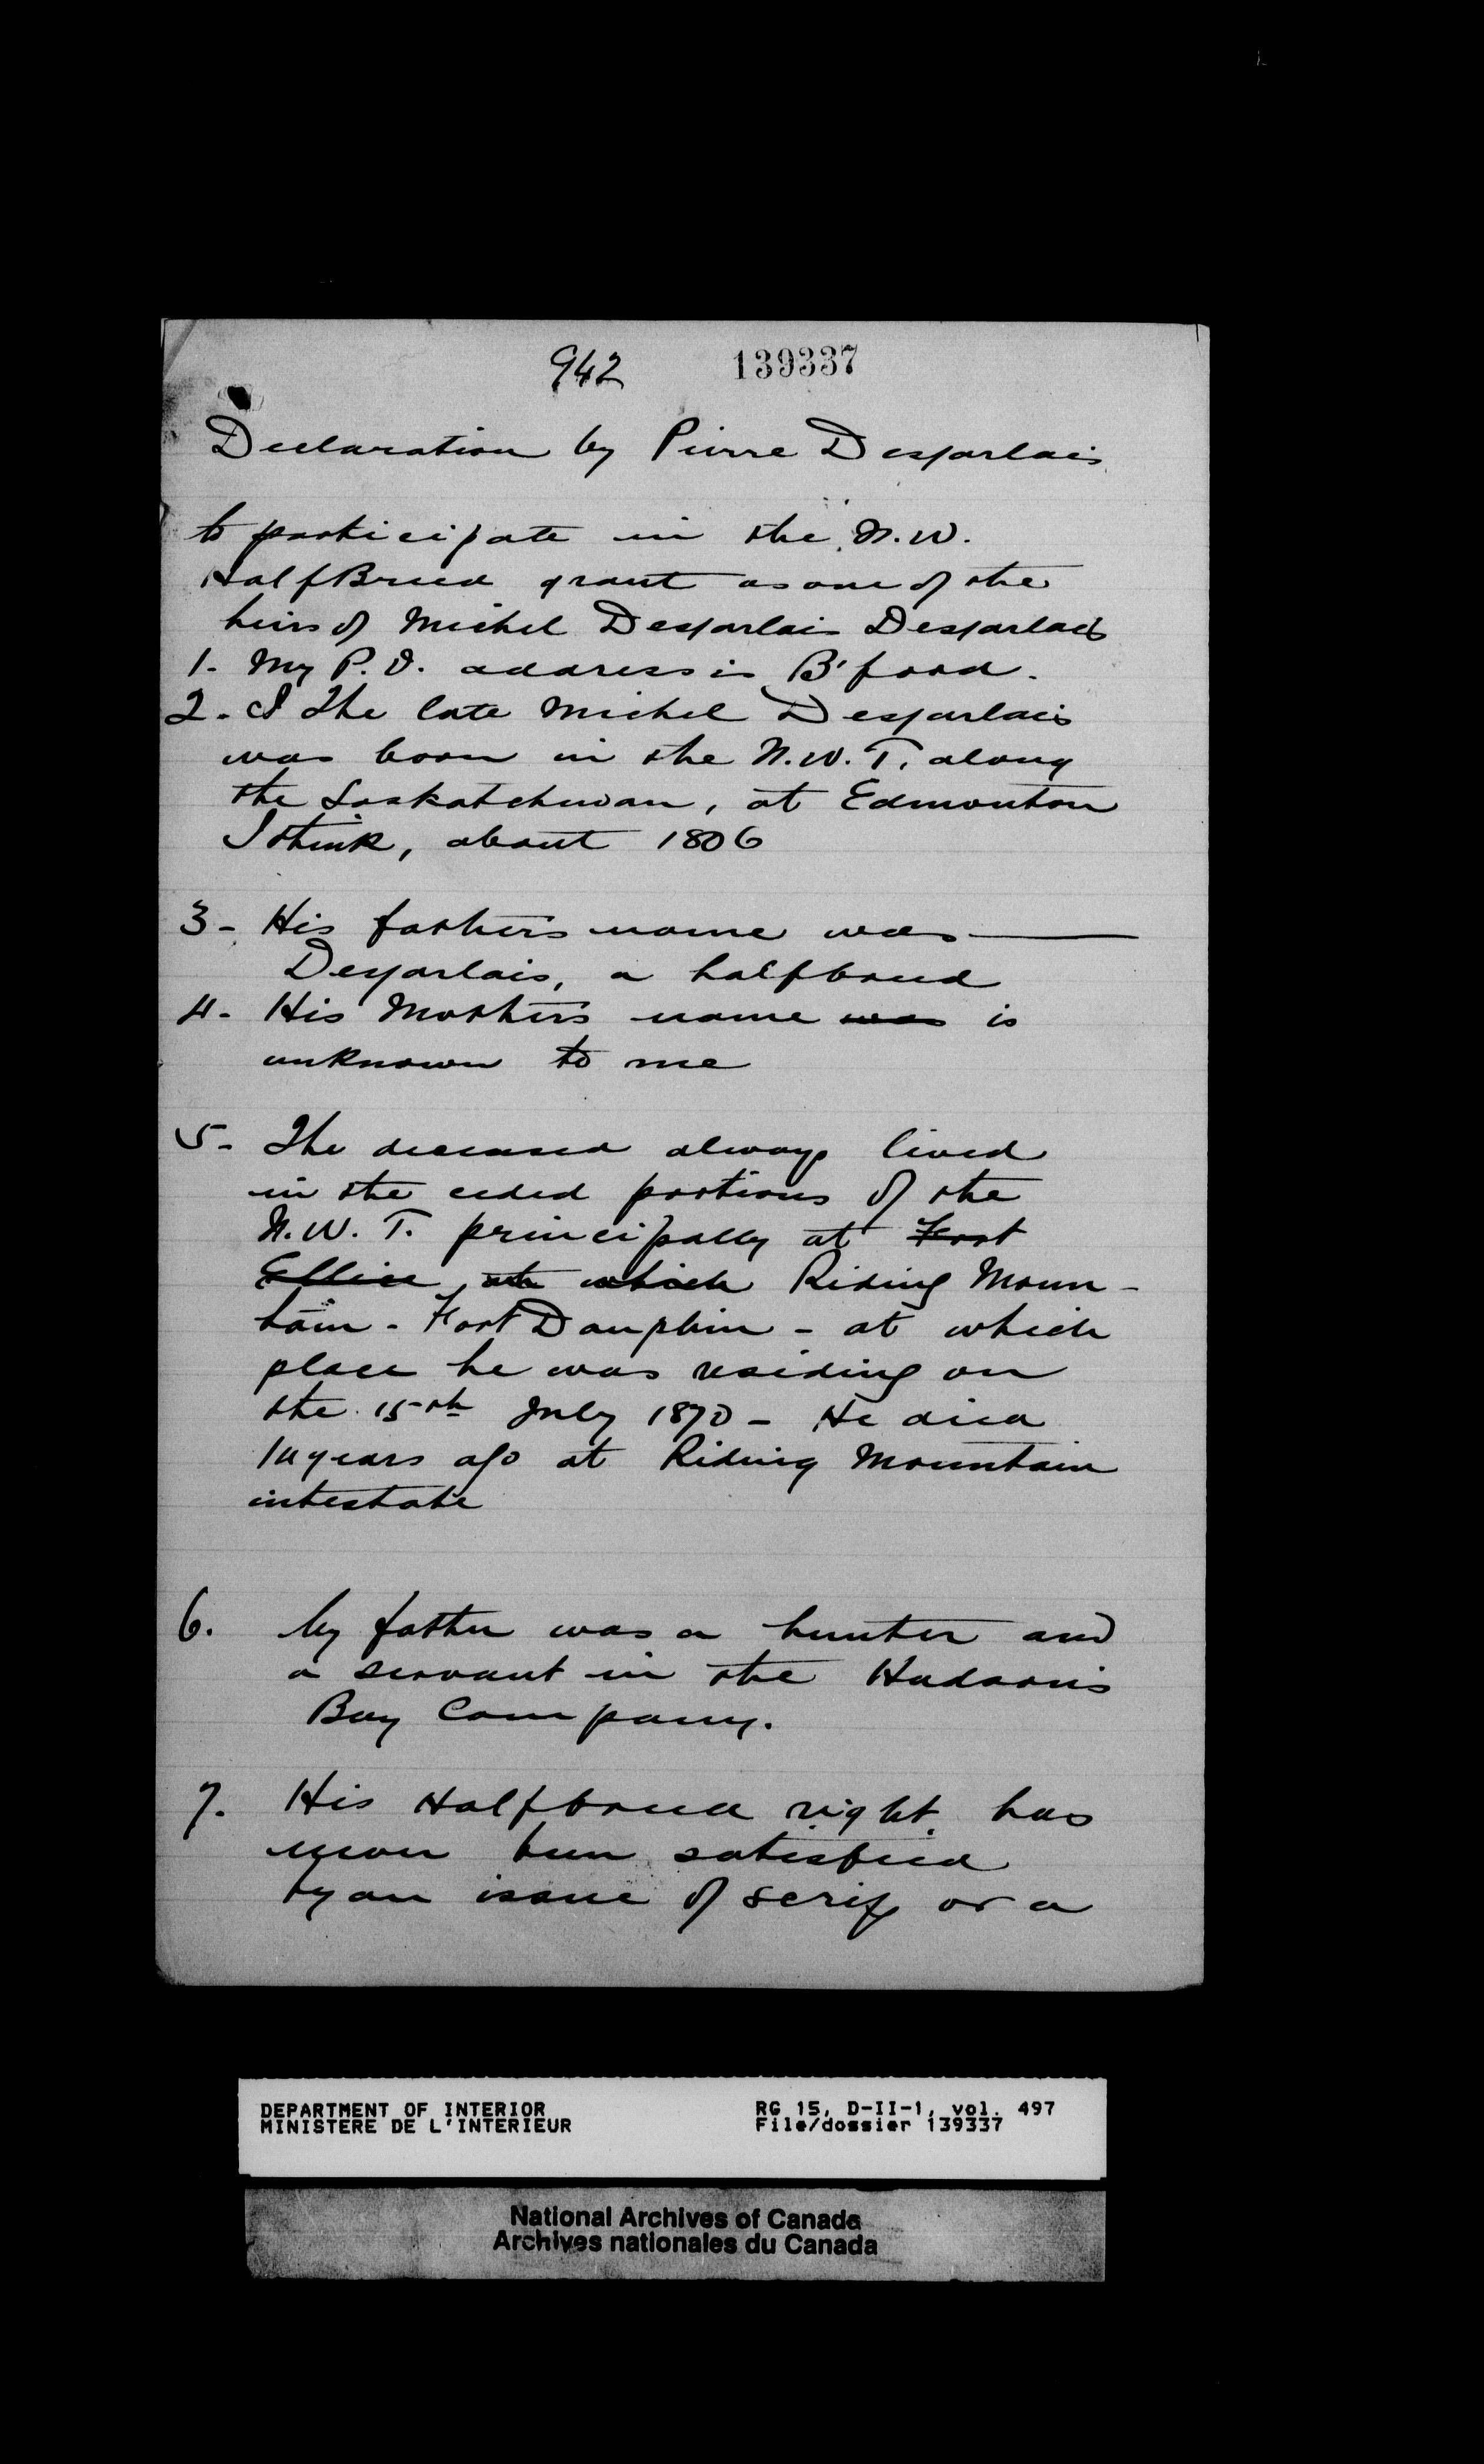 942 139337
Declaration by Pierre Desjarlais
to participate in the N.W.
HalfBreed grant as one of the
heirs of Michel Desjarlais Desjarlais
1- My P.O. address is B'ford.
2- I The late Michel Desjarlais
was born in the N.W.T. along
the Saskatchewan, at Edmonton
I think, about 1806
3- His father's name was ———
Desjarlais, a halfbreed
4- His Mother's name was is
unknown to me
5- The deceased always lived
in the ceded portions of the
N.W.T. principally at Fort
Ellice, at which Riding Moun-
tain - Fort Dauphin - at which
place he was residing on
the 15th July 1870 - He died
14 years ago at Riding Mountain
intestate
6. My father was a hunter and
a servant in the Hudson's
Bay Company.
7. His Halfbreed right has
never been satisfied
by an issue of scrip or a
DEPARTMENT OF INTERIOR RG 15, D-II-1, vol. 497
MINISTERE DE L'INTERIEUR File/dossier 139337
National Archives of Canada
Archives nationales du Canada